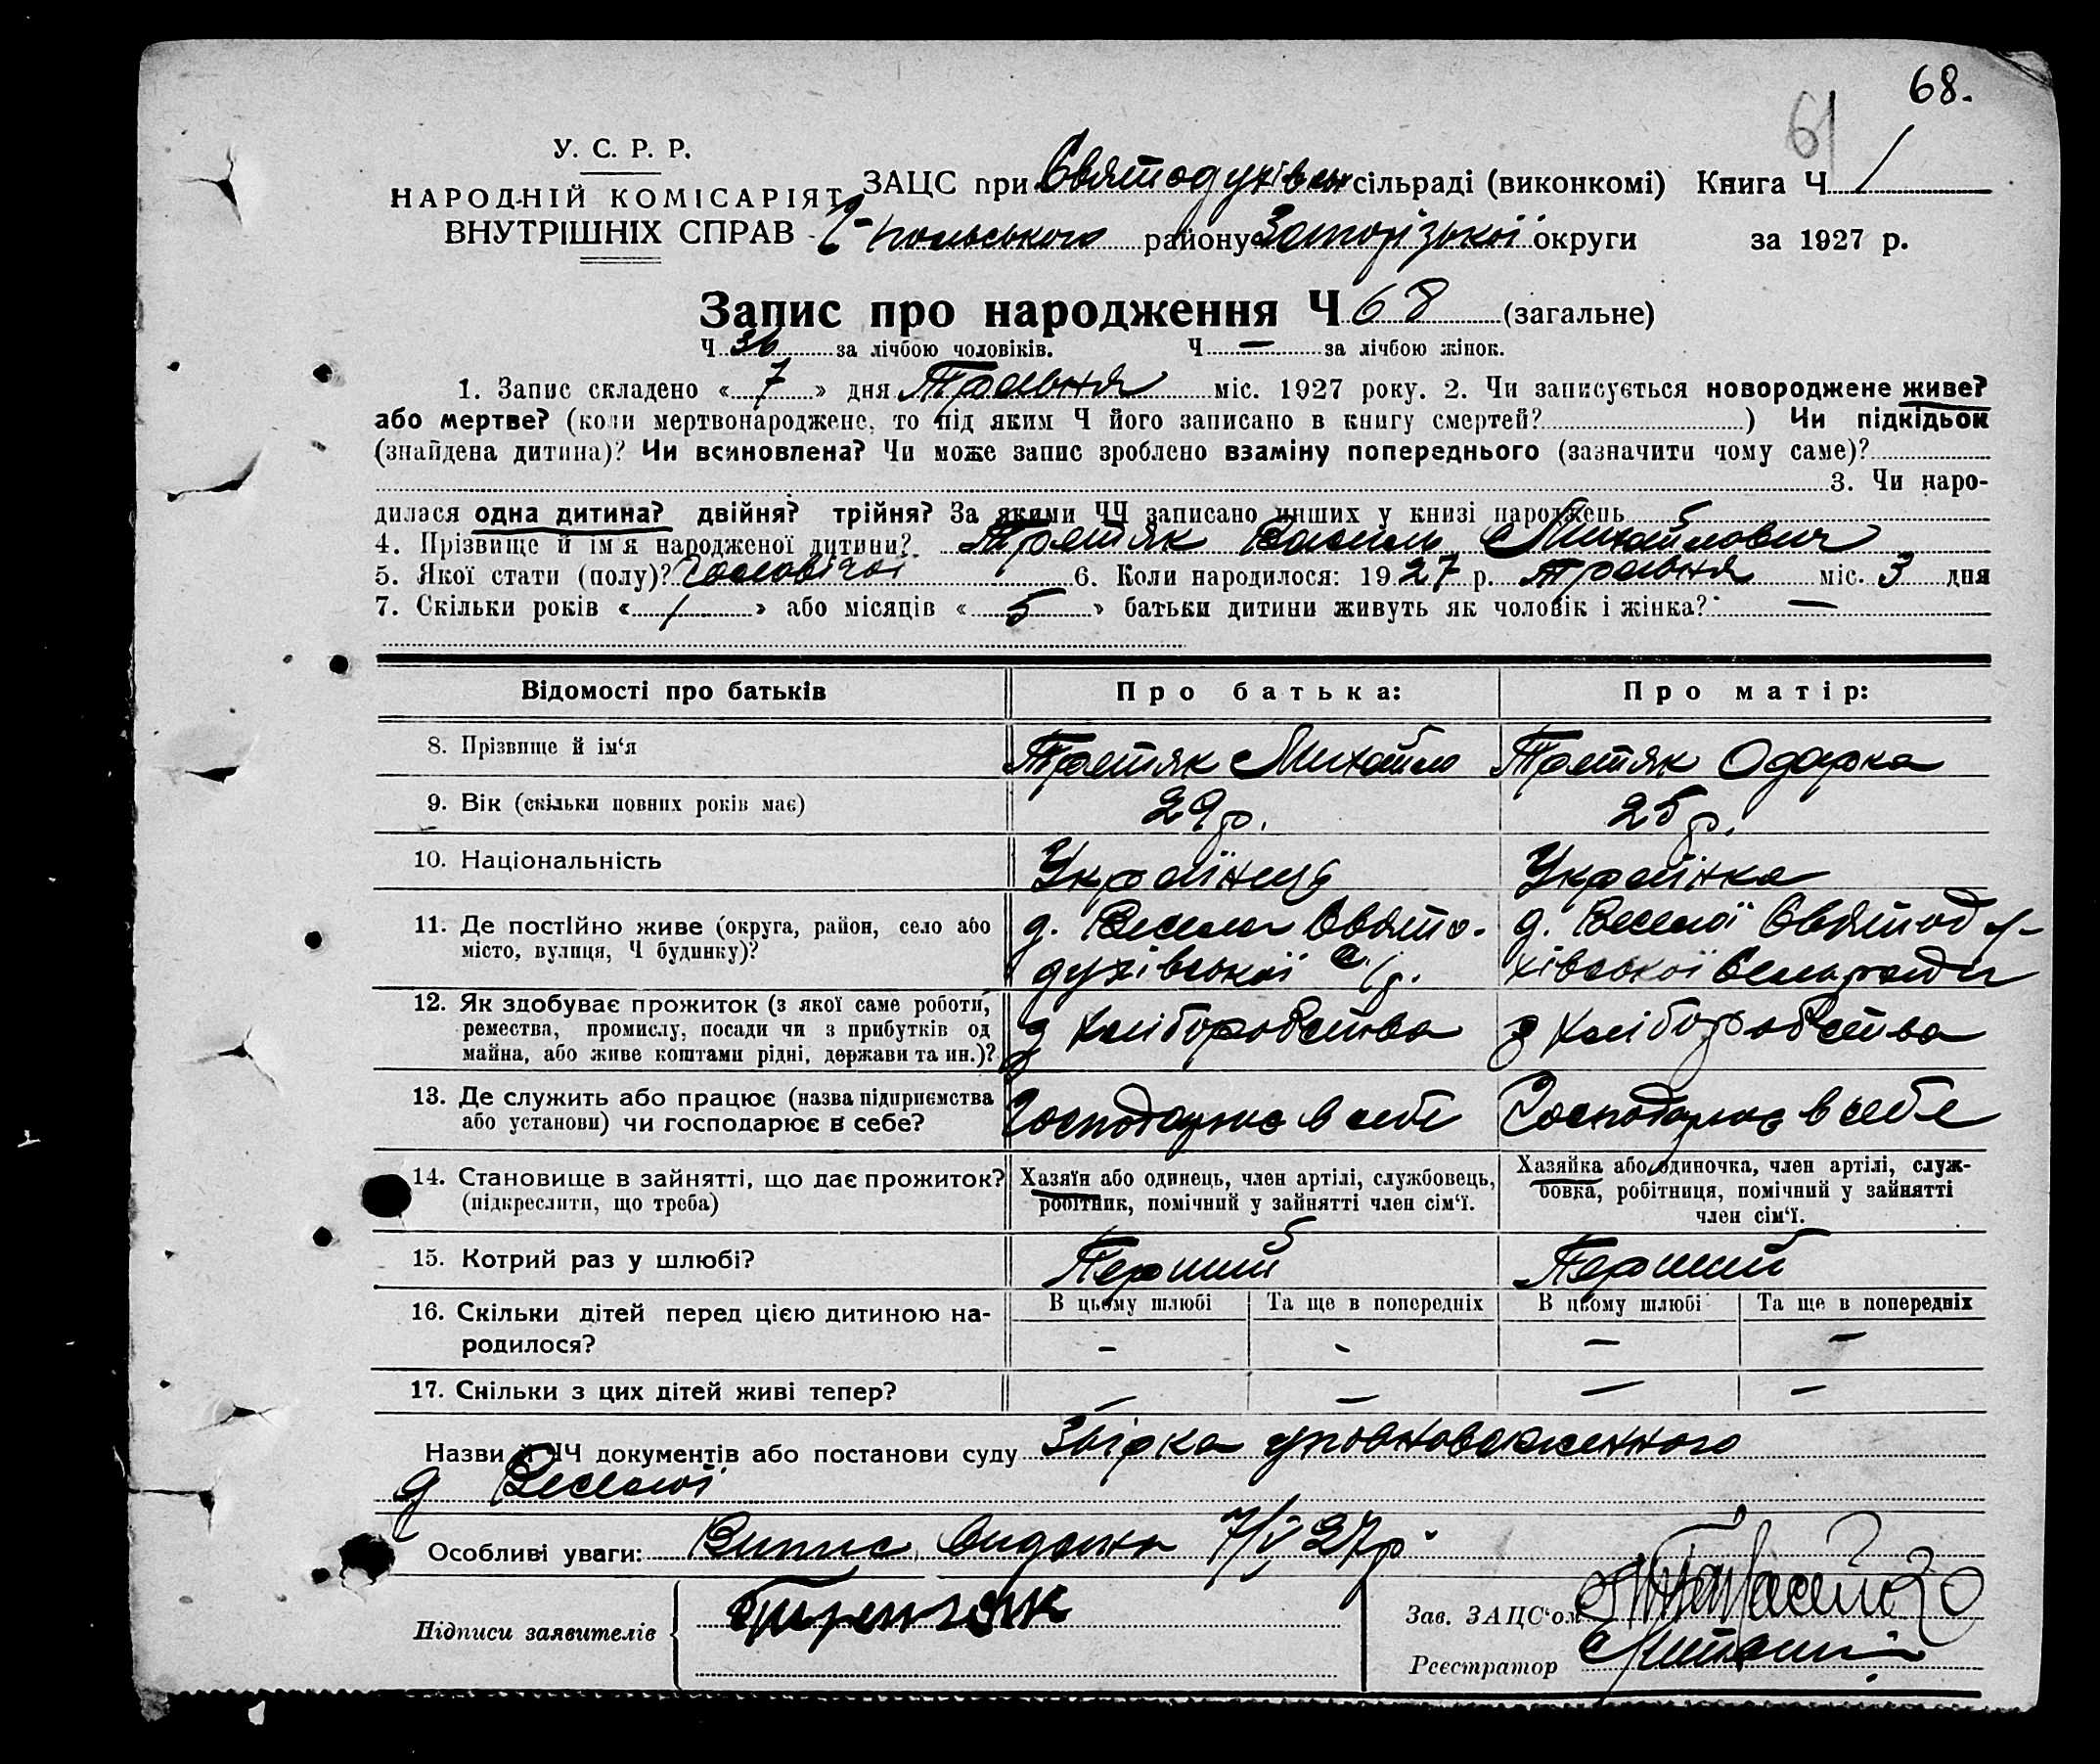 68.
61
У. С. Р. Р.
НАРОДНІЙ КОМІСАРІЯТ
ВНУТРІШНІХ СПРАВ
ЗАЦС при Святодухівськ сільраді (виконкомі) Книга Ч 1
районну Запорізької округи за 1927 р.
Запис про народження Ч 68 (загальне)
Ч 36 за лічбою чоловіків. Ч — за лічбою жінок.
1. Запис складено « 7 » дня Травня міс. 1927 року. 2. Чи записується новороджене живе?
або мертве? (коли мертвонароджене, то під яким Ч його записано в книгу смертей? ) Чи підкідьок
(знайдена дитина)? Чи всиновлена? Чи може запис зроблено взаміну попереднього (зазначити чому саме)?
3. Чи наро-
дилася одна дитина? двійня? трійня? За якими ЧЧ записано инших у книзі народжень
4. Прізвище й ім'я народженої дитини? Третяк Василь Михайлович
5. Якої стати (полу)? Чоловічої 6. Коли народилося: 19 27 р. травня міс. 3 дня
7. Скільки років « 1 » або місяців « 5 » батьки дитини живуть як чоловік і жінка? —
Відомості про батьків Про батька: Про матір:
8. Прізвище й ім'я Третяк Михайло Третяк Одарка
9. Вік (скільки повних років має) 29 р. 25 р.
10. Національність Українець Українка
11. Де постійно живе (округа, район, село або місто, вулиця, Ч будинку)? д. Весела Свято-
духівської с/р. д. Веселої Святоду-
хівської Сельради
12. Як здобуває прожиток (з якої саме роботи, ремества, промислу, посади чи з прибутків од майна, або живе коштами рідні, держави та ин.)? з хліборобства з хліборобства
13. Де служить або працює (назва підприємства або установи) чи господарює в себе? Господарює в себе Господарює в себе
14. Становище в зайнятті, що дає прожиток? (підкреслити, що треба) Хазяїн або одинець, член артілі, службовець, робітник, помічний у зайнятті член сім'ї. Хазяйка або одиночка, член артілі, служ-
бовка, робітниця, помічний у зайнятті
член сім'ї.
15. Котрий раз у шлюбі? Перший Перший
В цьому шлюбі Та ще в попередніх В цьому шлюбі Та ще в попередніх
16. Скільки дітей перед цією дитиною на-
родилося? - - — —
17. Скільки з цих дітей живі тепер? — — — —
Назви й ЧЧ документів або постанови суду Звірка уповноваженного
д Веселої
Особливі уваги: Випис видано 7/V 27р
Підписи заявителів
Зав. ЗАЦС'ом
Реєстратор